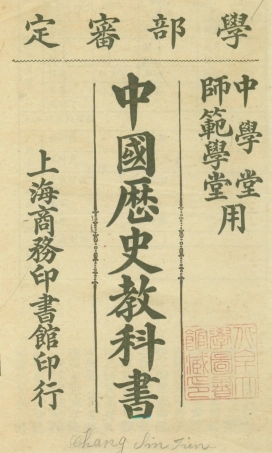 學部審定
中學堂
師範學堂用
中國歷史教科書
上海商務印書館印行